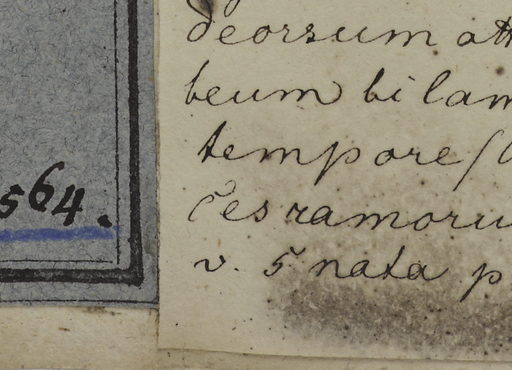 deorsum att
beum bilam
tempore (
ces ramoru
v. 5 nata p
564.